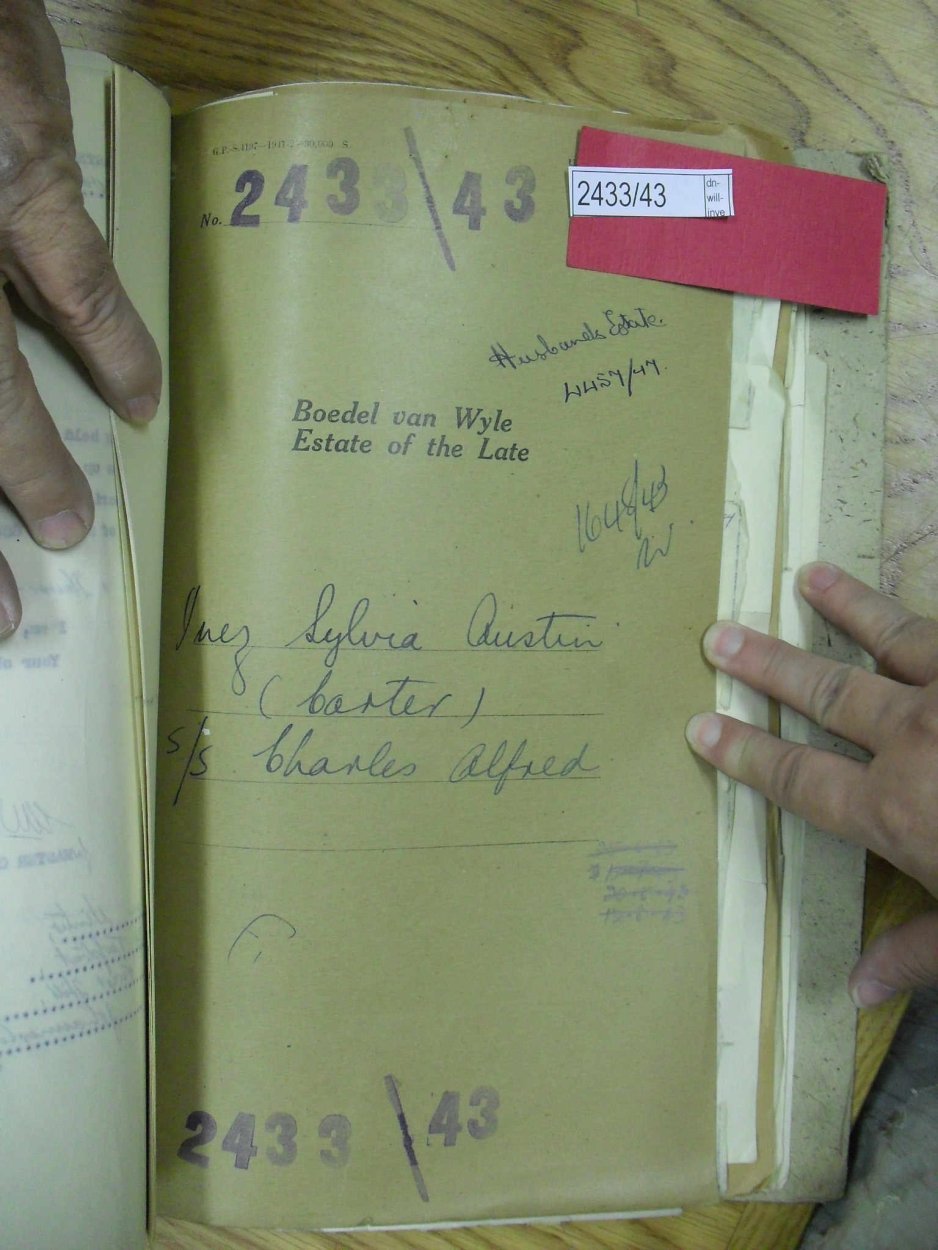 G.P.-S.4197—1941-2—80,000 S.
No. 2433/43
2433/43
dn-
will-
inve
Husbands Estate.
4457/47.
Boedel van Wyle
Estate of the Late
1648/43
Inez Sylvia Austin
(Carter)
s/s Charles Alfred
2433/43
Your